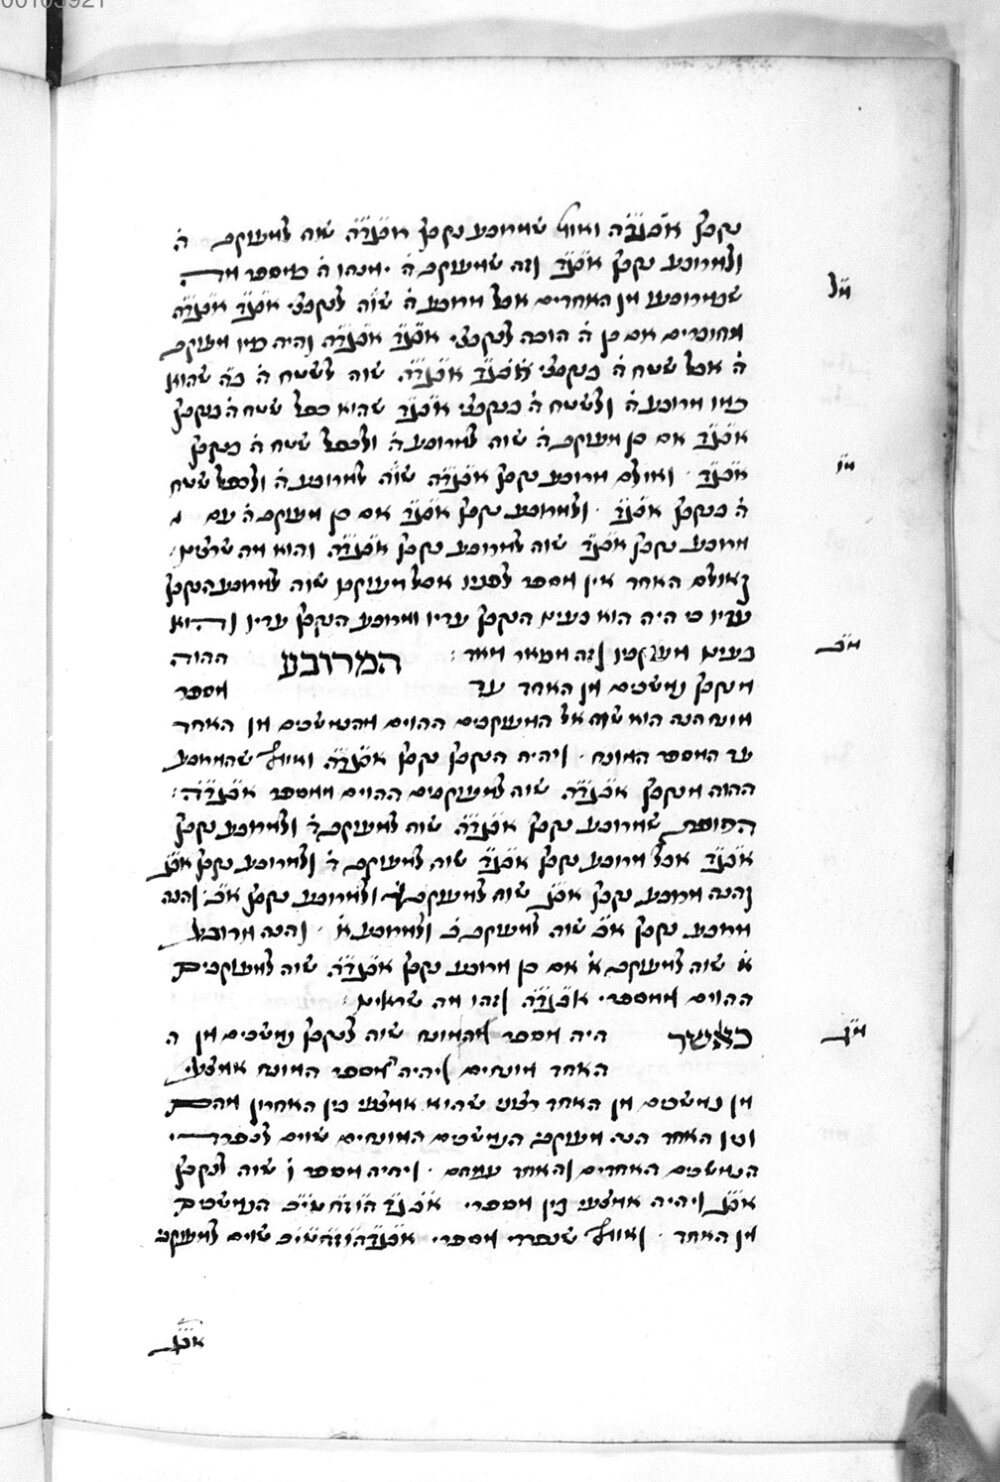 נקבץ אבגדה ואומ' שמרובע נקבץ אבגדה שוה למעוקב ה
ולמרובע נקבץ אבגד וזה שמעוקב ה ימנהו ה במספר מה
שבמרובעו מן האחדים אבל מרובע ה שוה לנקבצי אבגד אבגדה
מחוברים אם כן ה הוכה לנקבצי אבגד אבגדה והיה ממנו מעוקב
ה אבל שטח ה בנקבצי אבגד אבגדה שוה לשטח ה בה שהוא
כמו מרובע ה ולשטח ה בנקבצי אבגד שהוא כפל שטח ה בנקבץ
אבגד אם כן מעוקב ה שוה למרובע ה ולכפל שטח ה בנקבץ
אבגד ואולם מרובע נקבץ אבגדה שוה למרובע ה ולכפל שטח
ה בנקבץ אבגד ולמרובע נקבץ אבגד אם כן מעוקב ה עם
מרובע נקבץ אבגד שוה למרובע נקבץ אבגדה והוא מה שרצינו
ואולם האחד אין מספר לפניו אבל מעוקבו שוה למרובע הנקבץ
עדיו כי היה הוא בעינו הנקבץ עדיו ומרובע הנקבץ עדיו והוא
בעינו מעוקבו וזה מבואר מאד : המרובע ההוה
מנקבץ נמשכים מן האחד עד מספר
מונח הנה הוא שוה אל המעוקבים ההוים מהנמשכים מן האחד
עד המספר המונח ויהיה הנקבץ נקבץ אבגדה ואומ' שהמרובע
ההוה מנקבץ אבגדה שוה למעוקבים ההוים ממספר אבגדה :
המופת שמרובע נקבץ אבגדה שוה למעוקב ה ולמרובע נקבץ
אבגד אבל מרובע נקבץ אבגד שוה למעוקב ד ולמרובע נקבץ אבג
והנה מרובע נקבץ אבג שוה למעוקב ג ולמרובע נקבץ אב והנה
מרובע נקבץ אב שוה למעוקב ב ולמרובע א והנה מרובע
א שוה למעוקב א אם כן מרובע נקבץ אבגדה שוה למעוקבים
ההוים ממספרי אבגדה וזהו מה שראינו :
כאשר היה מספר מהמונח שוה לנקבץ נמשכים מן ה
האחד מונחים ויהיה מספר המונח אמצעי
מן נמשכים מן האחד רצוני שהוא אמצעי בין האחרון מהם
ובין האחד הנה מעוקבי הנמשכים המונחים שוים לנפרדי
הנמשכים האחרים והאחד עמהם ויהיה מספר ו שוה לנקבץ
אבג ויהיה אמצעי בין מספרי אבגדהוזחטיכ הנמשכים
מן האחד ואומ' שנפרדי מספרי אבגדהוזחטיכ שוים למעוקבי
אבג
מל
מו
מב
מג